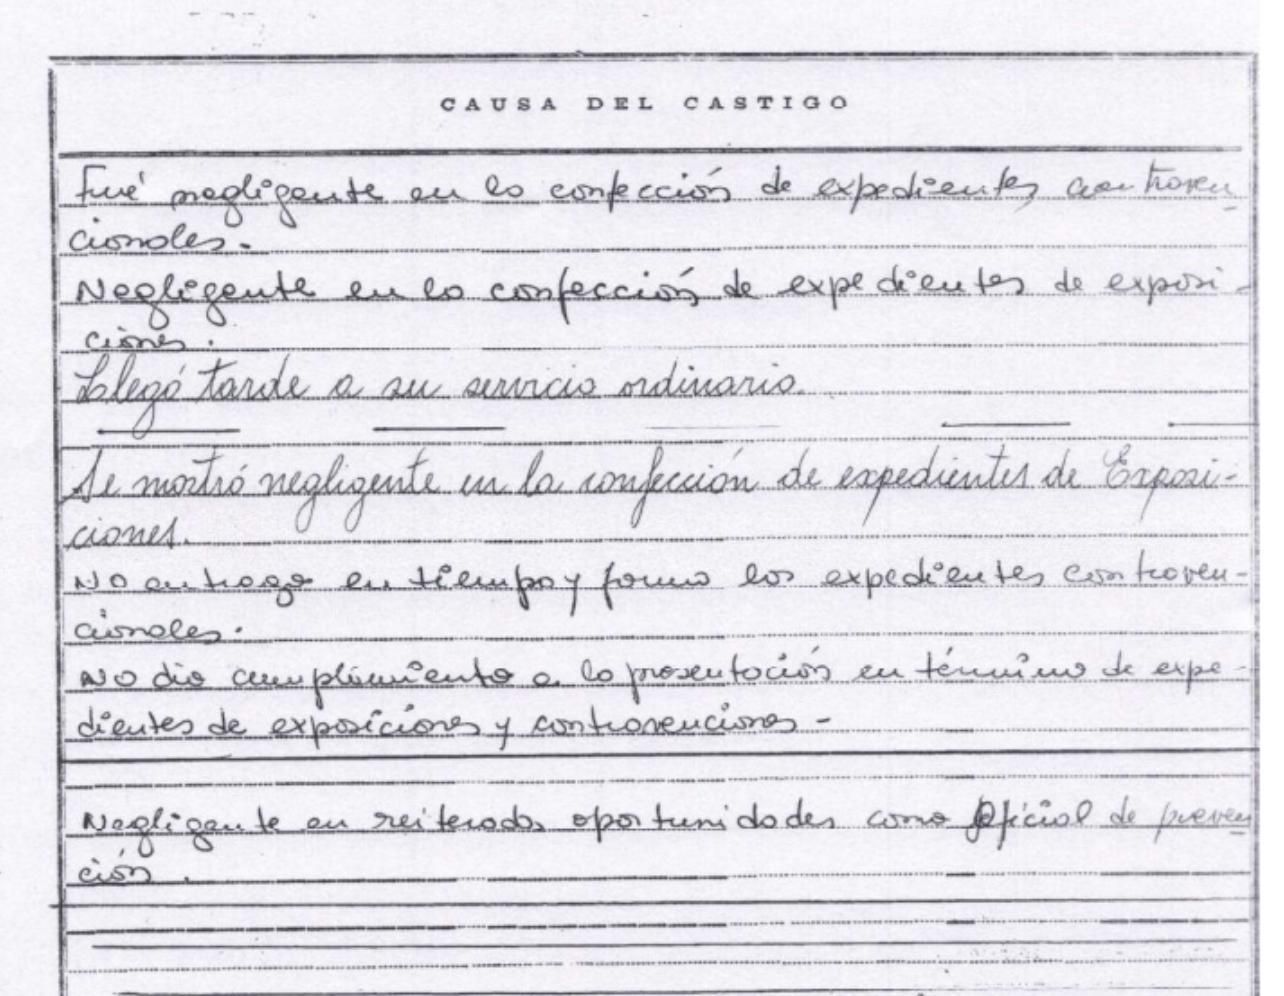 CAUSA DEL CASTIGO
Fué negligente en la confección de expedientes contraven
cionales.-
Negligente en la confección de expedientes de exposi-
ciones.
Llegó tarde a su servicio ordinario.
Se mostró negligente en la confección de expedientes de Exposi-
ciones.
No entrego en tiempo y forma los expedientes contraven-
cionales.
No dio cumplimiento a la presentación en término de expe-
dientes de exposiciones y contravenciones -
Negligente en reiteradas oportunidades como Oficial de preven
ción.